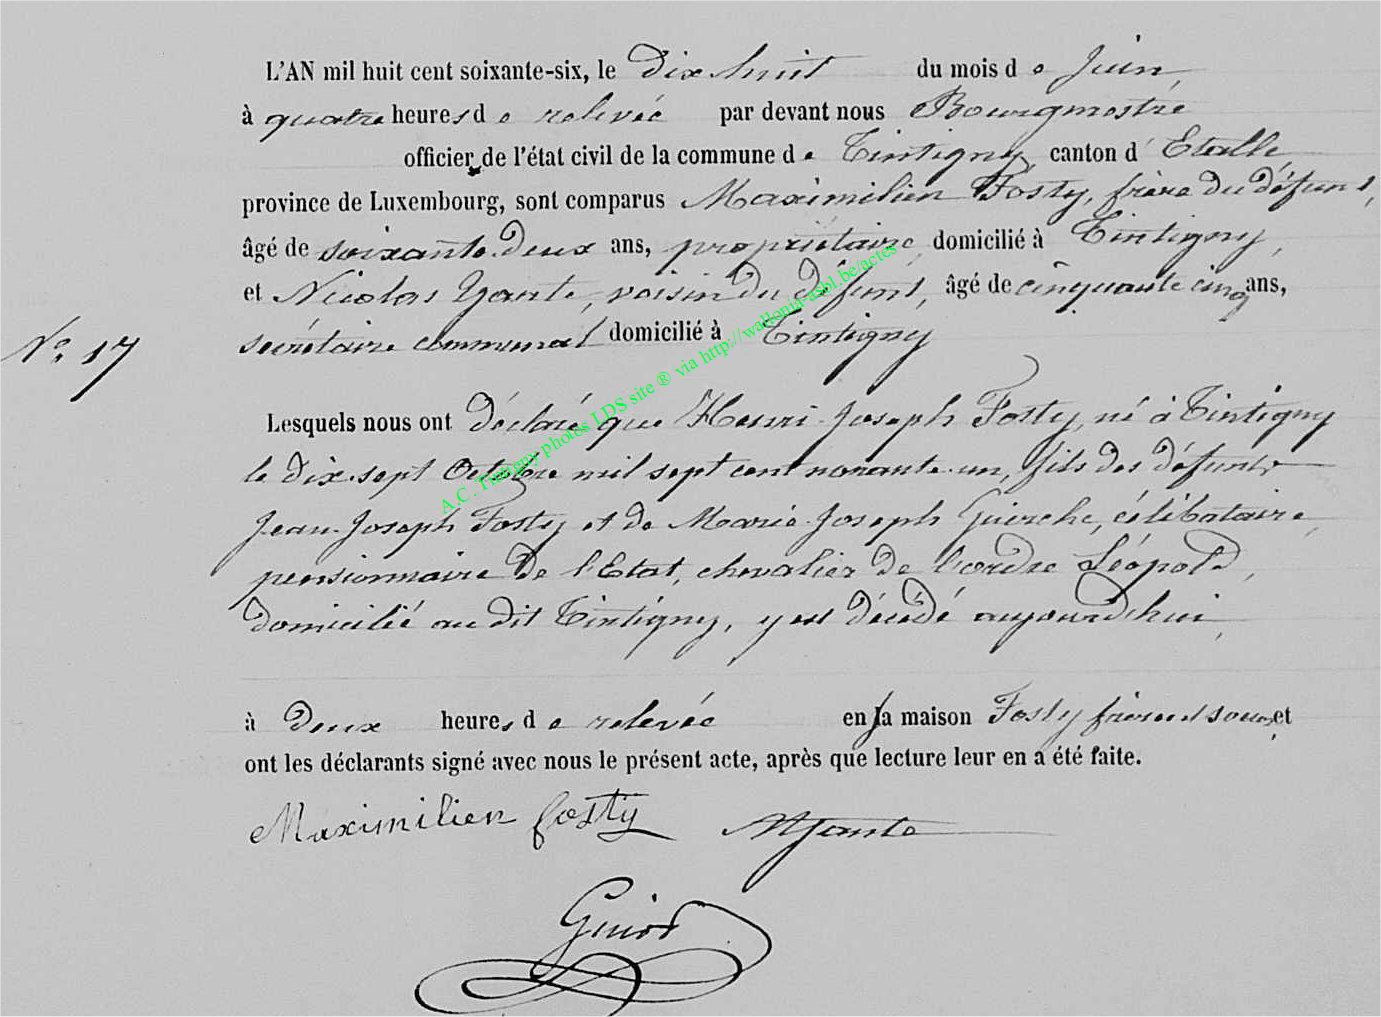 L'AN mil huit cent soixante-six, le dix huit du mois de Juin,
à quatre heures de relevée par devant nous Bourgmestre
officier de l'état civil de la commune de Tintigny, canton d'Etalle
province de Luxembourg, sont comparus Maximilien Fosty, frère du défunt,
âgé de soixante-deux ans, propriétaire domicilié à Tintigny,
et Nicolas voisin du défunt, âgé de cinquante cinq ans,
N° 17
secrétaire communal domicilié à Tintigny
Lesquels nous ont déclaré que Henri-Joseph Fosty, né à Tintigny
le dix-sept Octobre mil sept cent nonante-un, fils des défunts
Jean-Joseph Fosty et de Marie-Joseph célibataire,
pensionnaire de l'Etat, chevalier de l'ordre Léopold,
domicilié au dit Tintigny, y est décédé aujourd'hui,
à deux heures de relevée en la maison Fosty frère et soeur, et
ont les déclarants signé avec nous le présent acte, après que lecture leur en a été faite.
Maximilien fosty
A.C. Tintigny photos LDS site ® via http://wallonia-asbl.be/actes